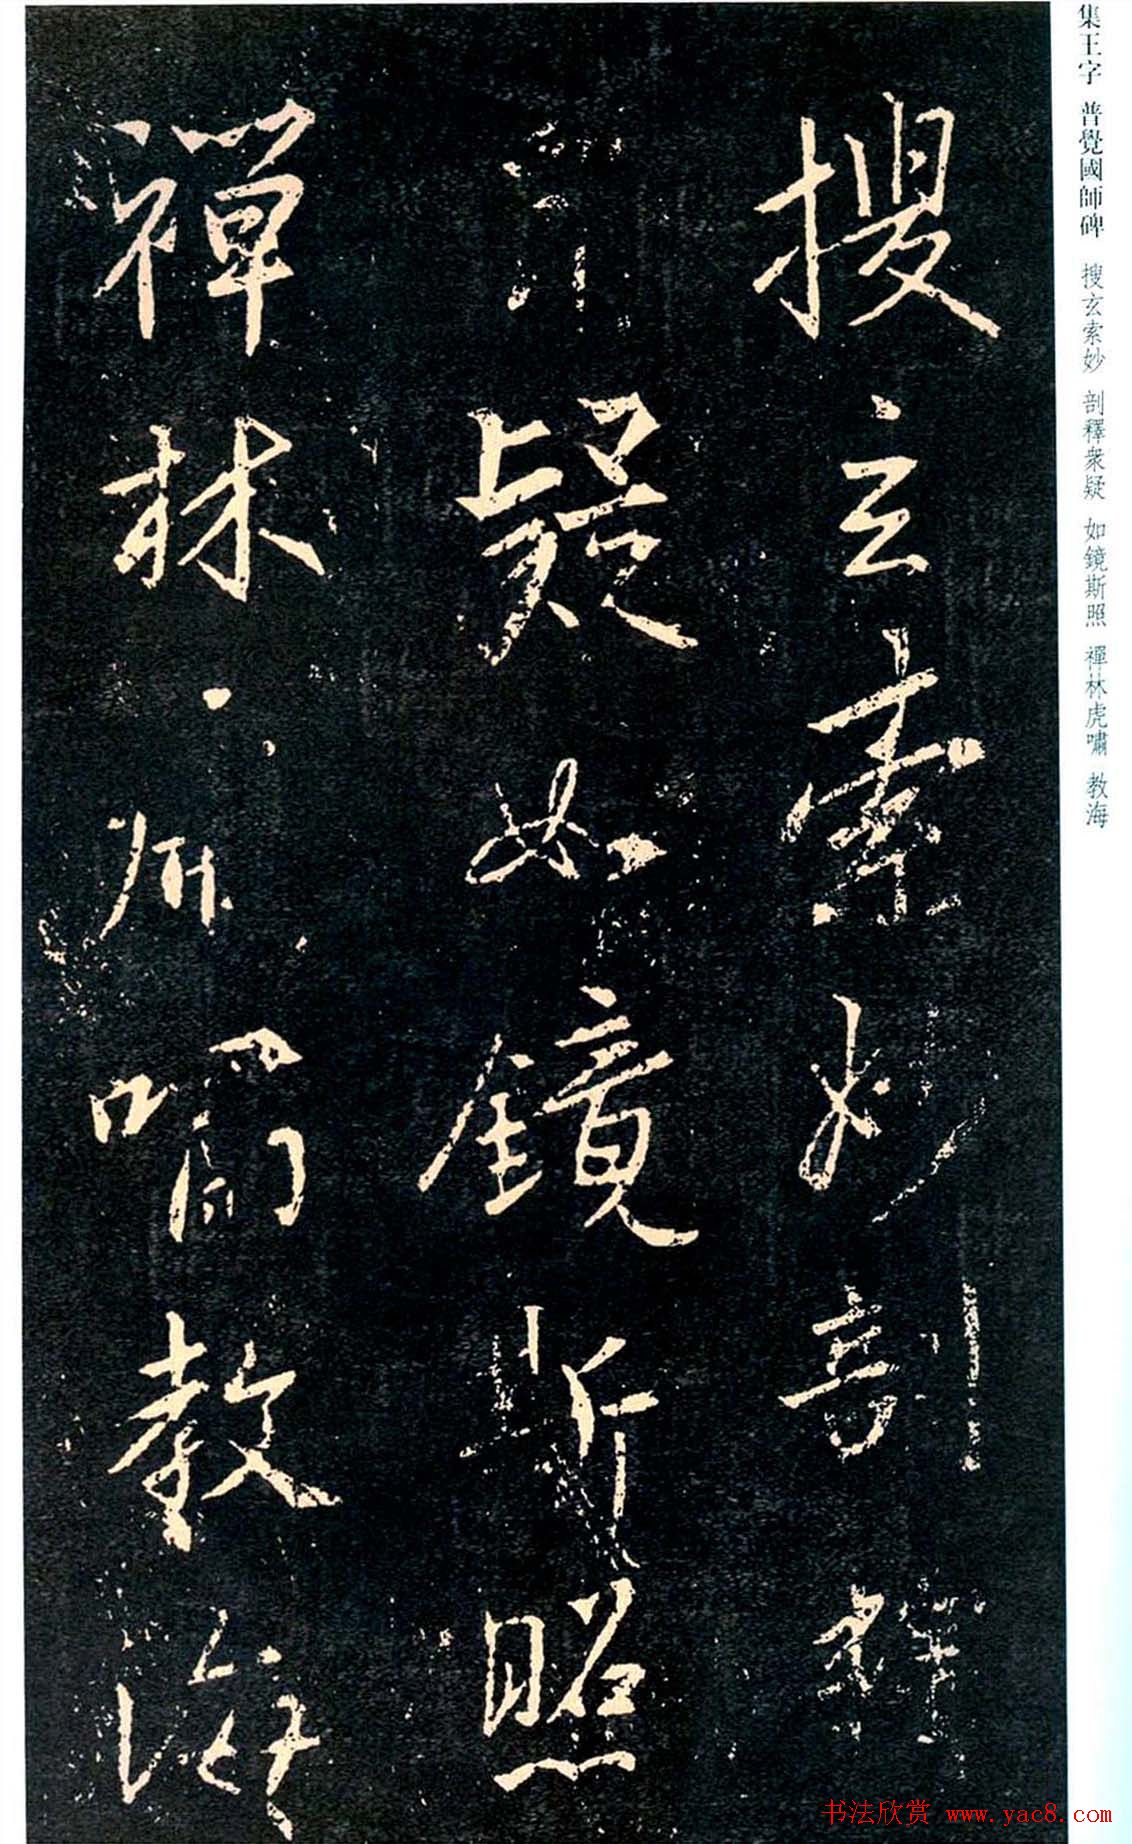 集王字 普覺國師碑 搜玄索妙 剖釋衆疑 如鏡斯照 禪林虎嘯 教海
搜玄索妙剖釋
疑如鏡斯照
禪林虎嘯教海
书法欣赏 www.yac8.com